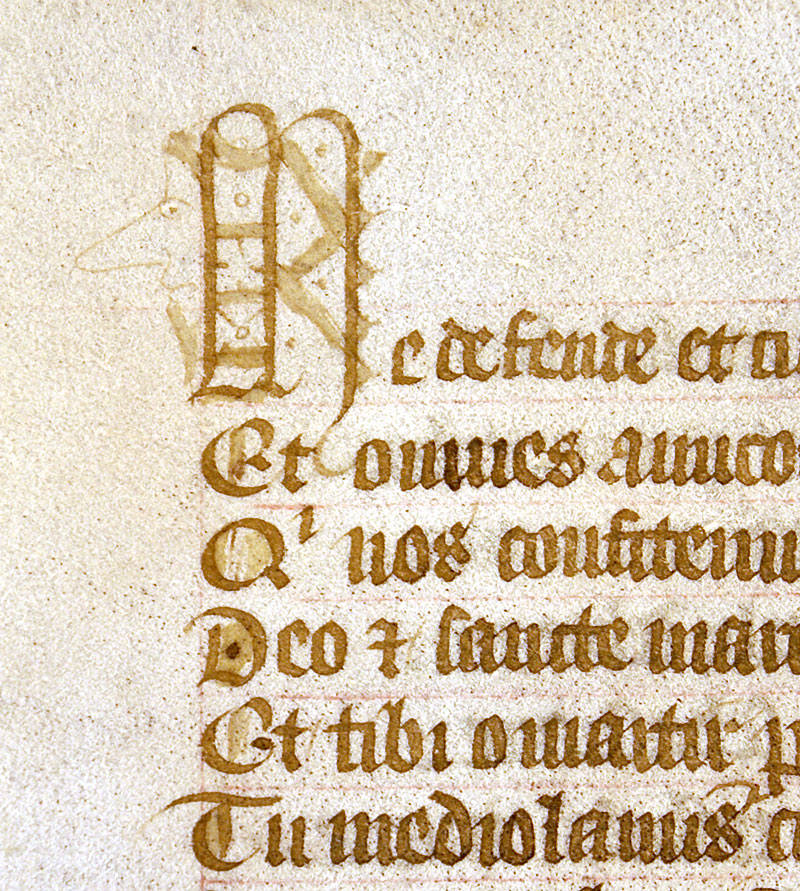 Me defende et cu
Et omnes amico
Qⁱ nos confitemu
Deo ⁊ sancte mari
Et tibi o martir p
Tu mediolanus c